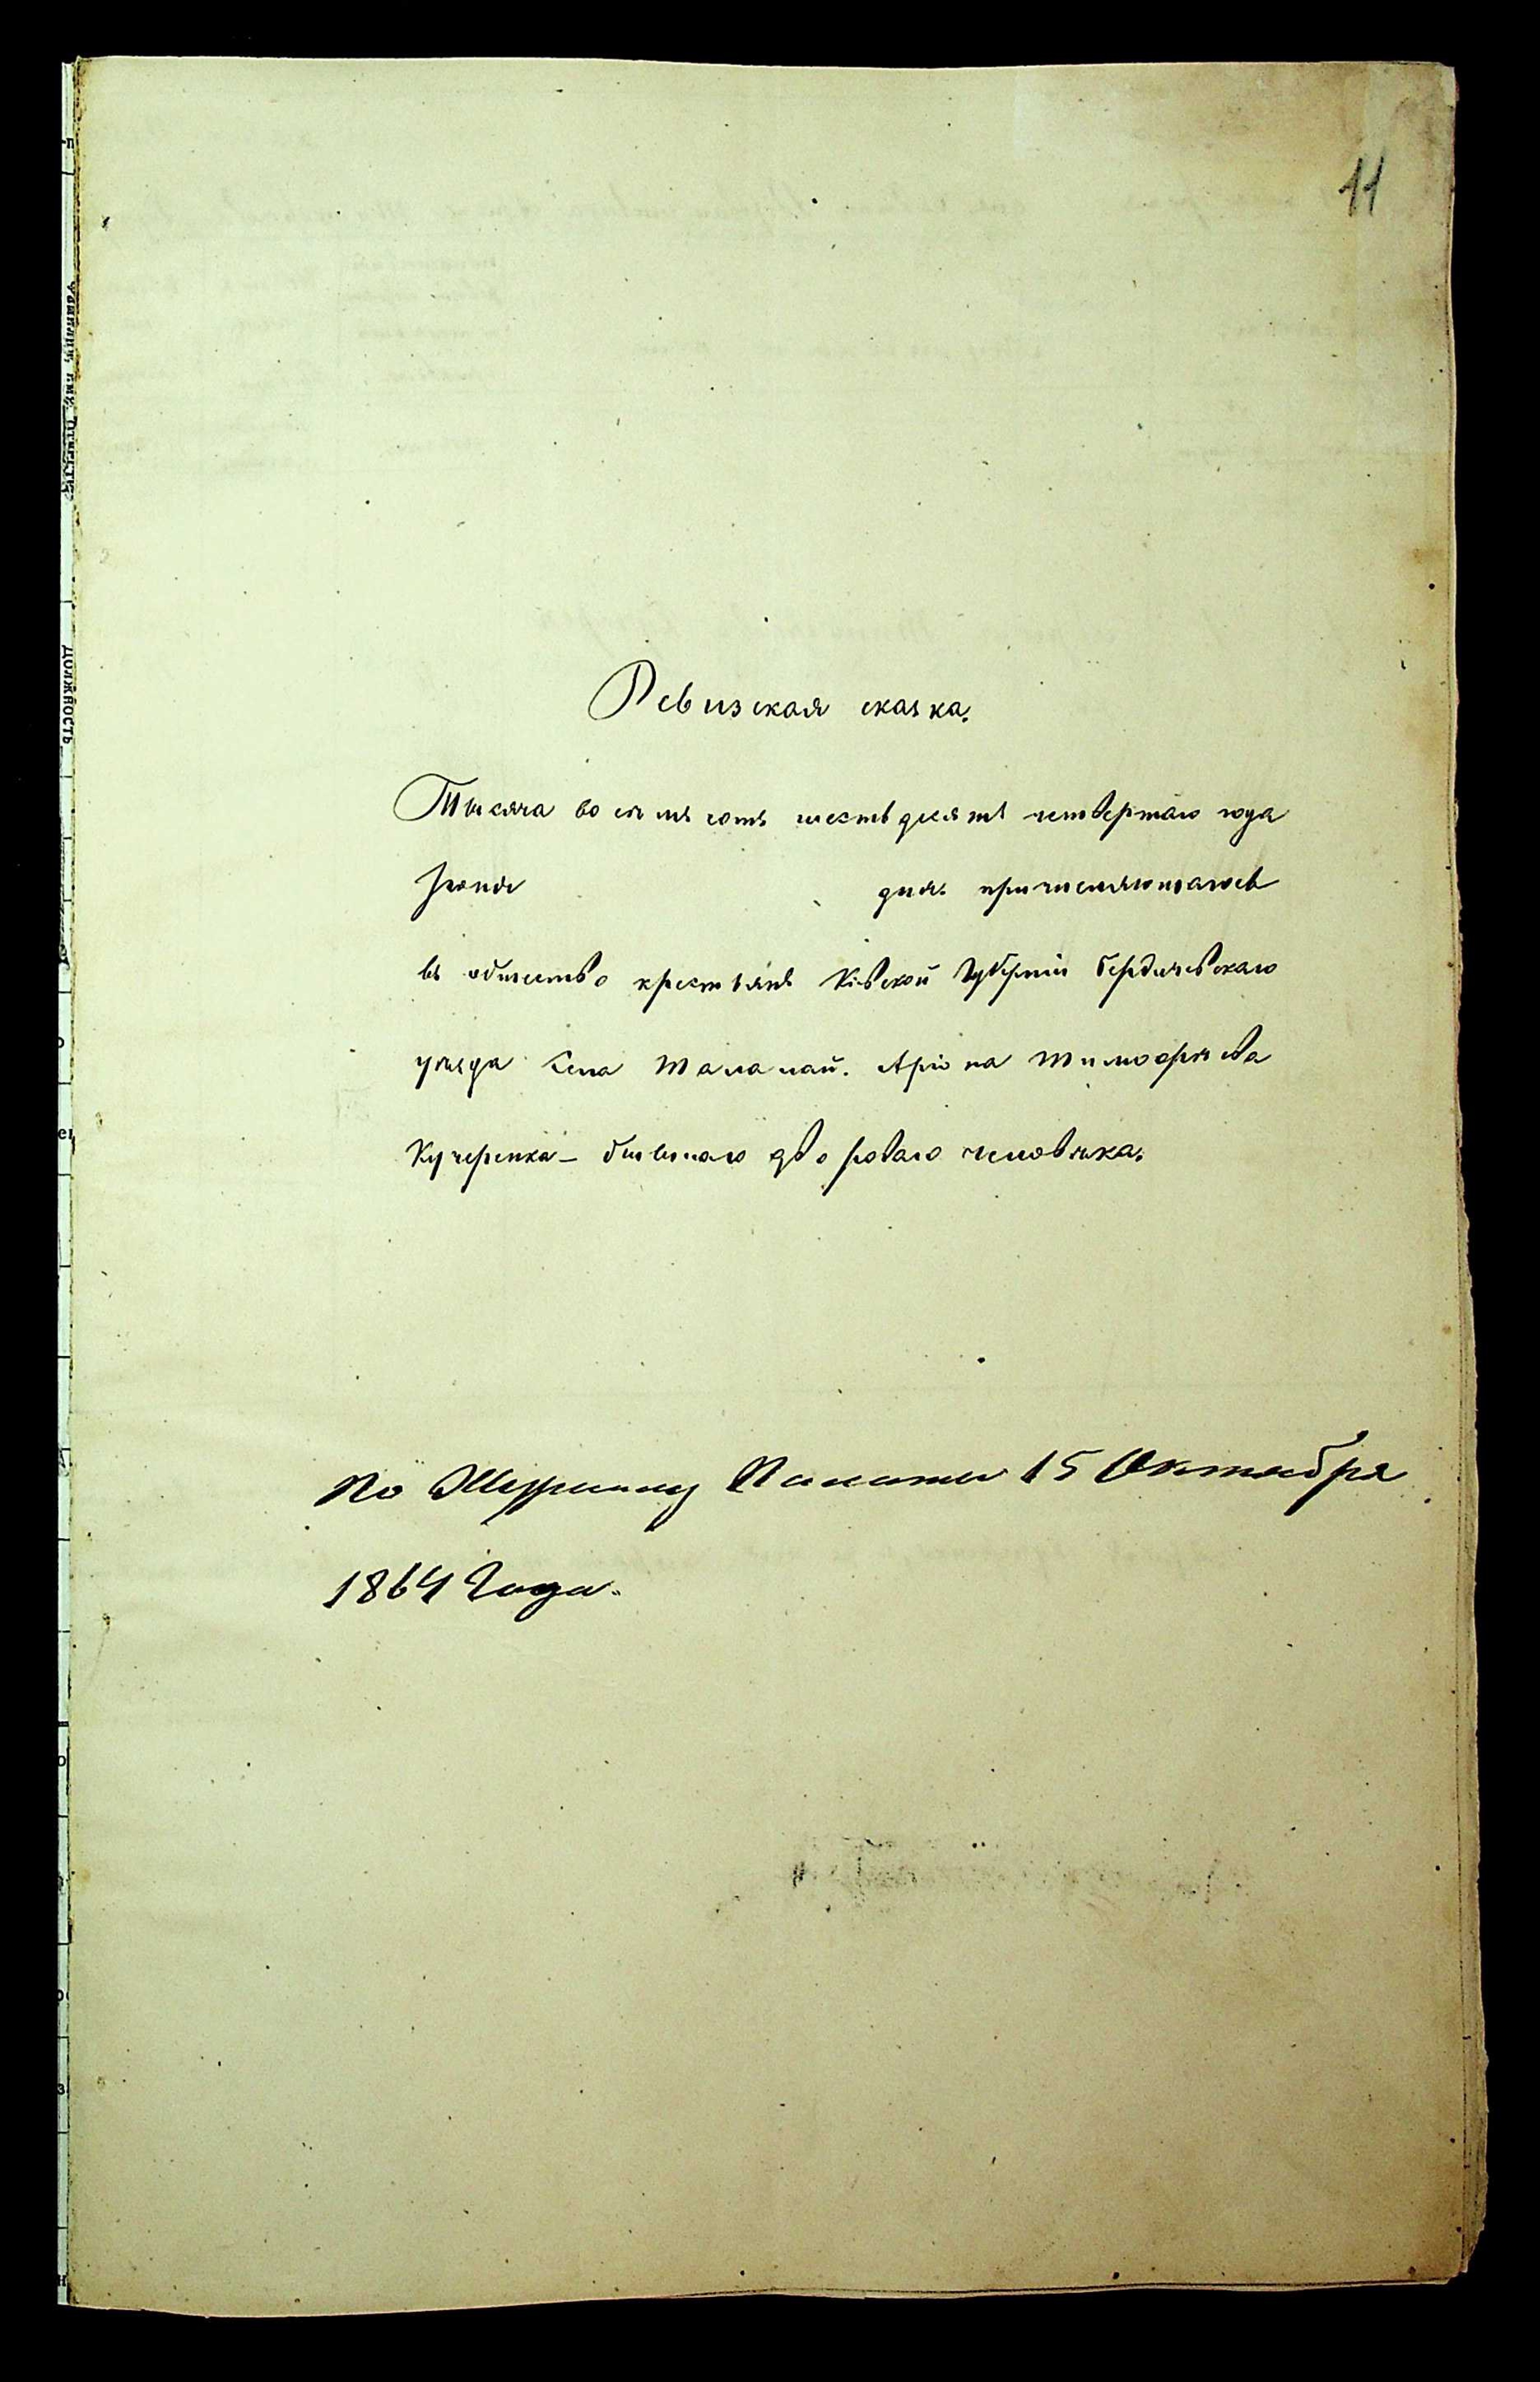 11
Ревизская сказка.
Тысяча восемъ сотъ шестьдесятъ четвертаго года
Іюня дня. причисляющагось
въ общество крестьянъ Кіевской Губерніи Бердичевскаго
уѣзда Села Талалай. Тимофѣева
Кучеренка – бывшаго двороваго человѣка.
По Журналу Палаты 15 Октября
1864 Года.
ДОЛЖНОСТЬ